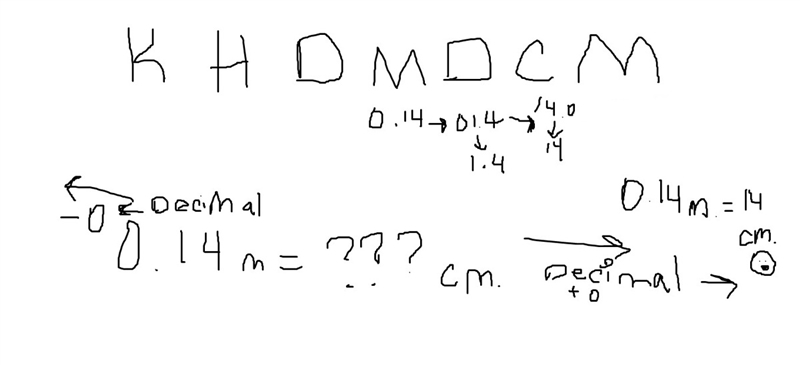 K H D M D C M
0.14 → 01.4 → 14.0
↓ ↓
1.4 14
← Decimal
-0
0.14 m = ??? cm.
0.14 m. = 14
cm.
Decimal →
+ 0